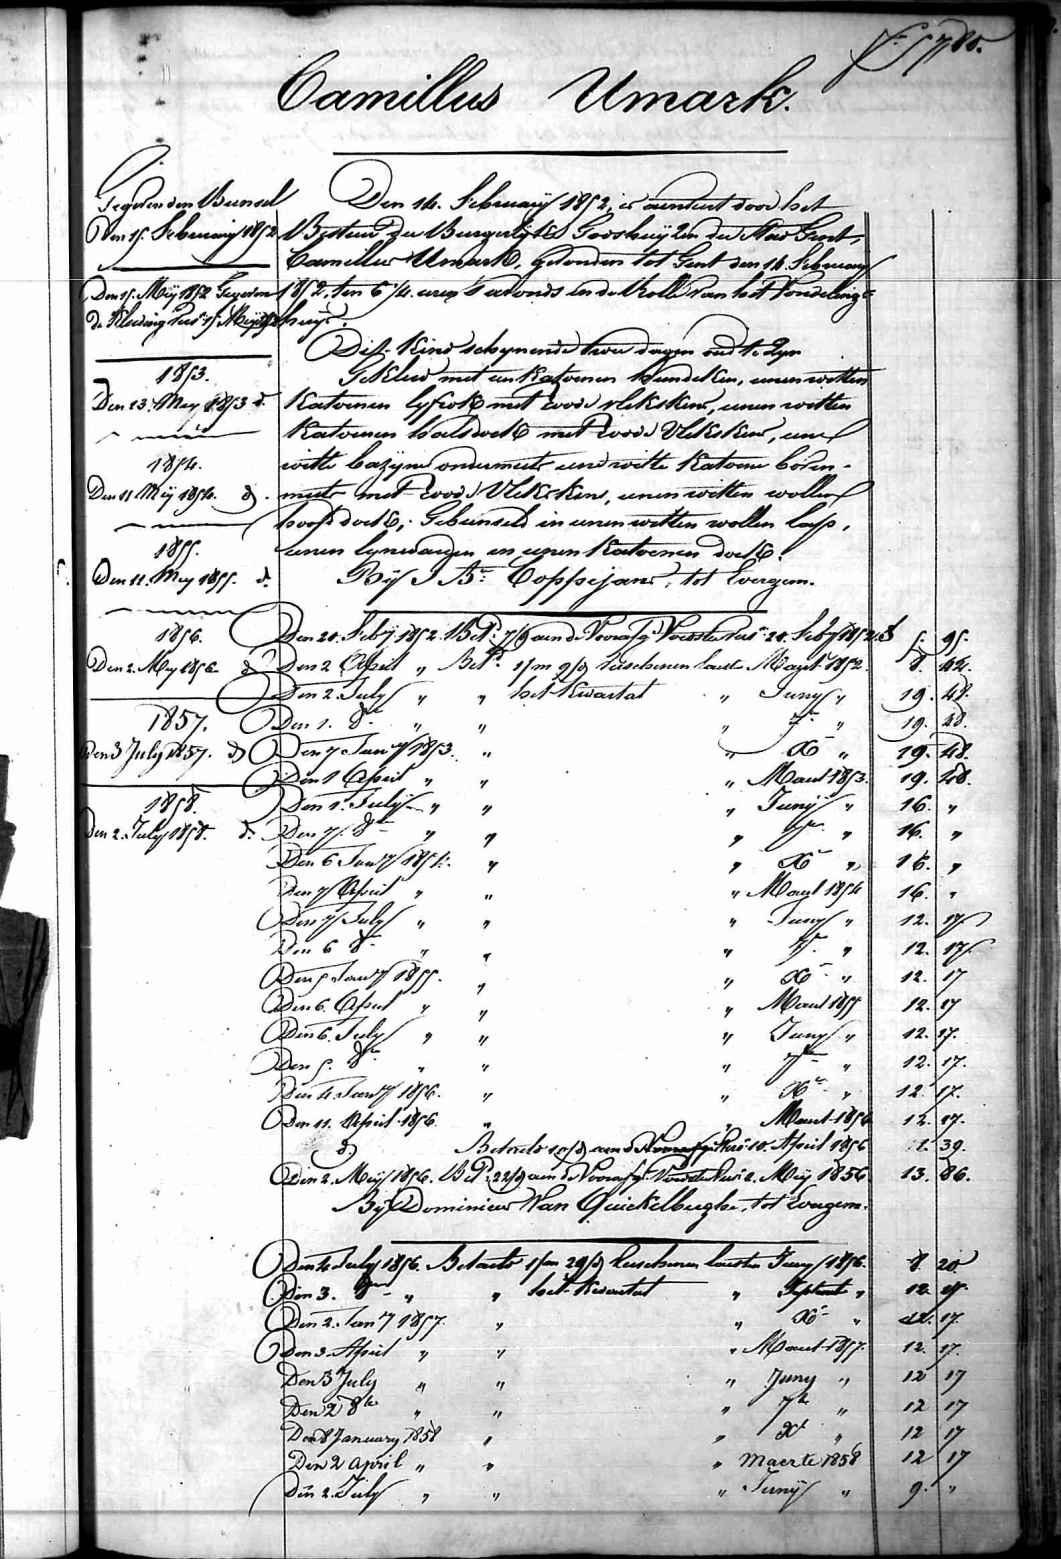 Camillus Umark.
Gegeven den Bunsel
Den 15. February 1852
Den 15. Meÿ 1852 Gegeven
de Kleeding
1853.
Den 23. Meÿ 1853 d.
1854.
Den 11 Meÿ 1854. d.
1855.
Den 11. Meÿ 1855. d.
1856.
Den 2. Meÿ 1856 d
1857.
Den 3 July 1857. d
1858.
Den 2. July 1858. d.
Den 14. Februarÿ 1852, is aenveert door het
Bestuer der Burgerlÿke Godshuÿzen der Stad Gent,
Camillus Umark, gevonden tot Gent den 14. February
1852, ten 6 1/4. uren s'avonds in de Rolle van het Vondelings
huÿs.
Dit Kind schynende twee dagen oud te zyn
Gekleed met een katoenen hemdeken, eenen witten
katoenen lyfrok met roode vlekskens, eenen witten
katoenen halsdoek met roode vlekskens, eene
witte bazyne ondermuts eene witte katoene boven-
muts met roode vlekskens, eenen witten wollen
hoofdoek, Gebunseld in eenen witten wollen lap,
eenen lynwaeden en eenen katoenen doek.
Bÿ J Bte Coppejans, tot Evergem.
Den 20. Feby 1852. Betd. 7/9 aen de Voorafg. Voedster 20. Feby 1852 5. 95.
Den 2 April „ Betd. 1/m 9/d tusschenen laeste Maert 1852. 8. 42.
Den 2. July „ „ het kwartal „ Juny „ 19. 48.
Den 1. 8re „ „ „ 7re „ 19. 48.
Den 7 Jany 1853. „ „ Xre „ 19. 48.
Den 1 April „ „ „ Maert 1853. 19. 48.
Den 1. July „ „ „ Junÿ „ 16. „
Den 7. 8re „ „ „ 7re „ 16. „
Den 6 Jany 1854. „ „ Xre „ 16. „
Den 7 April „ „ „ Maert 1854 16. „
Den 7 July „ „ „ Juny „ 12. 17
Den 6 8re „ „ „ 7re „ 12. 17
Den 5 Jany 1855. „ „ Xre „ 12. 17
Den 6. April „ „ „ Maert 1855 12. 17
Den 6. July „ „ „ Juny „ 12. 17.
Den 5. 8re „ „ „ 7re „ 12. 17.
Den 4. Jany 1856. „ „ Xre „ 12. 17.
Den 11. April 1856. „ Maert 1856 12. 17.
d. Betaeld aen de Voorafg. 10. April 1856 1. 39.
Den 2. Meÿ 1856. Betd. 22/d aen de Voorafg. Voedster 2. Meÿ 1856 13. 86.
Bÿ Dominicus Van Quickelberghe, tot Evergem.
Den 4 July 1856. Betaeld 1/m 29/d tusschenen laesten Juny 1856. 8 20
Den 3. 8re „ „ het kwartal „ Septemb „ 12. 17.
Den 2. Jany 1857. „ „ Xre „ 12. 17.
Den 3. April „ „ „ Maert 1857. 12. 17.
Den 3 July „ „ „ Juny „ 12 17
Den 2 8re „ „ „ 7re „ 12 17
Den 8 January 1858 „ „ Xre „ 12 17
Den 2 april „ „ „ Maerte 1858 12 17
Den 2. July „ „ „ Junÿ „ 9. „